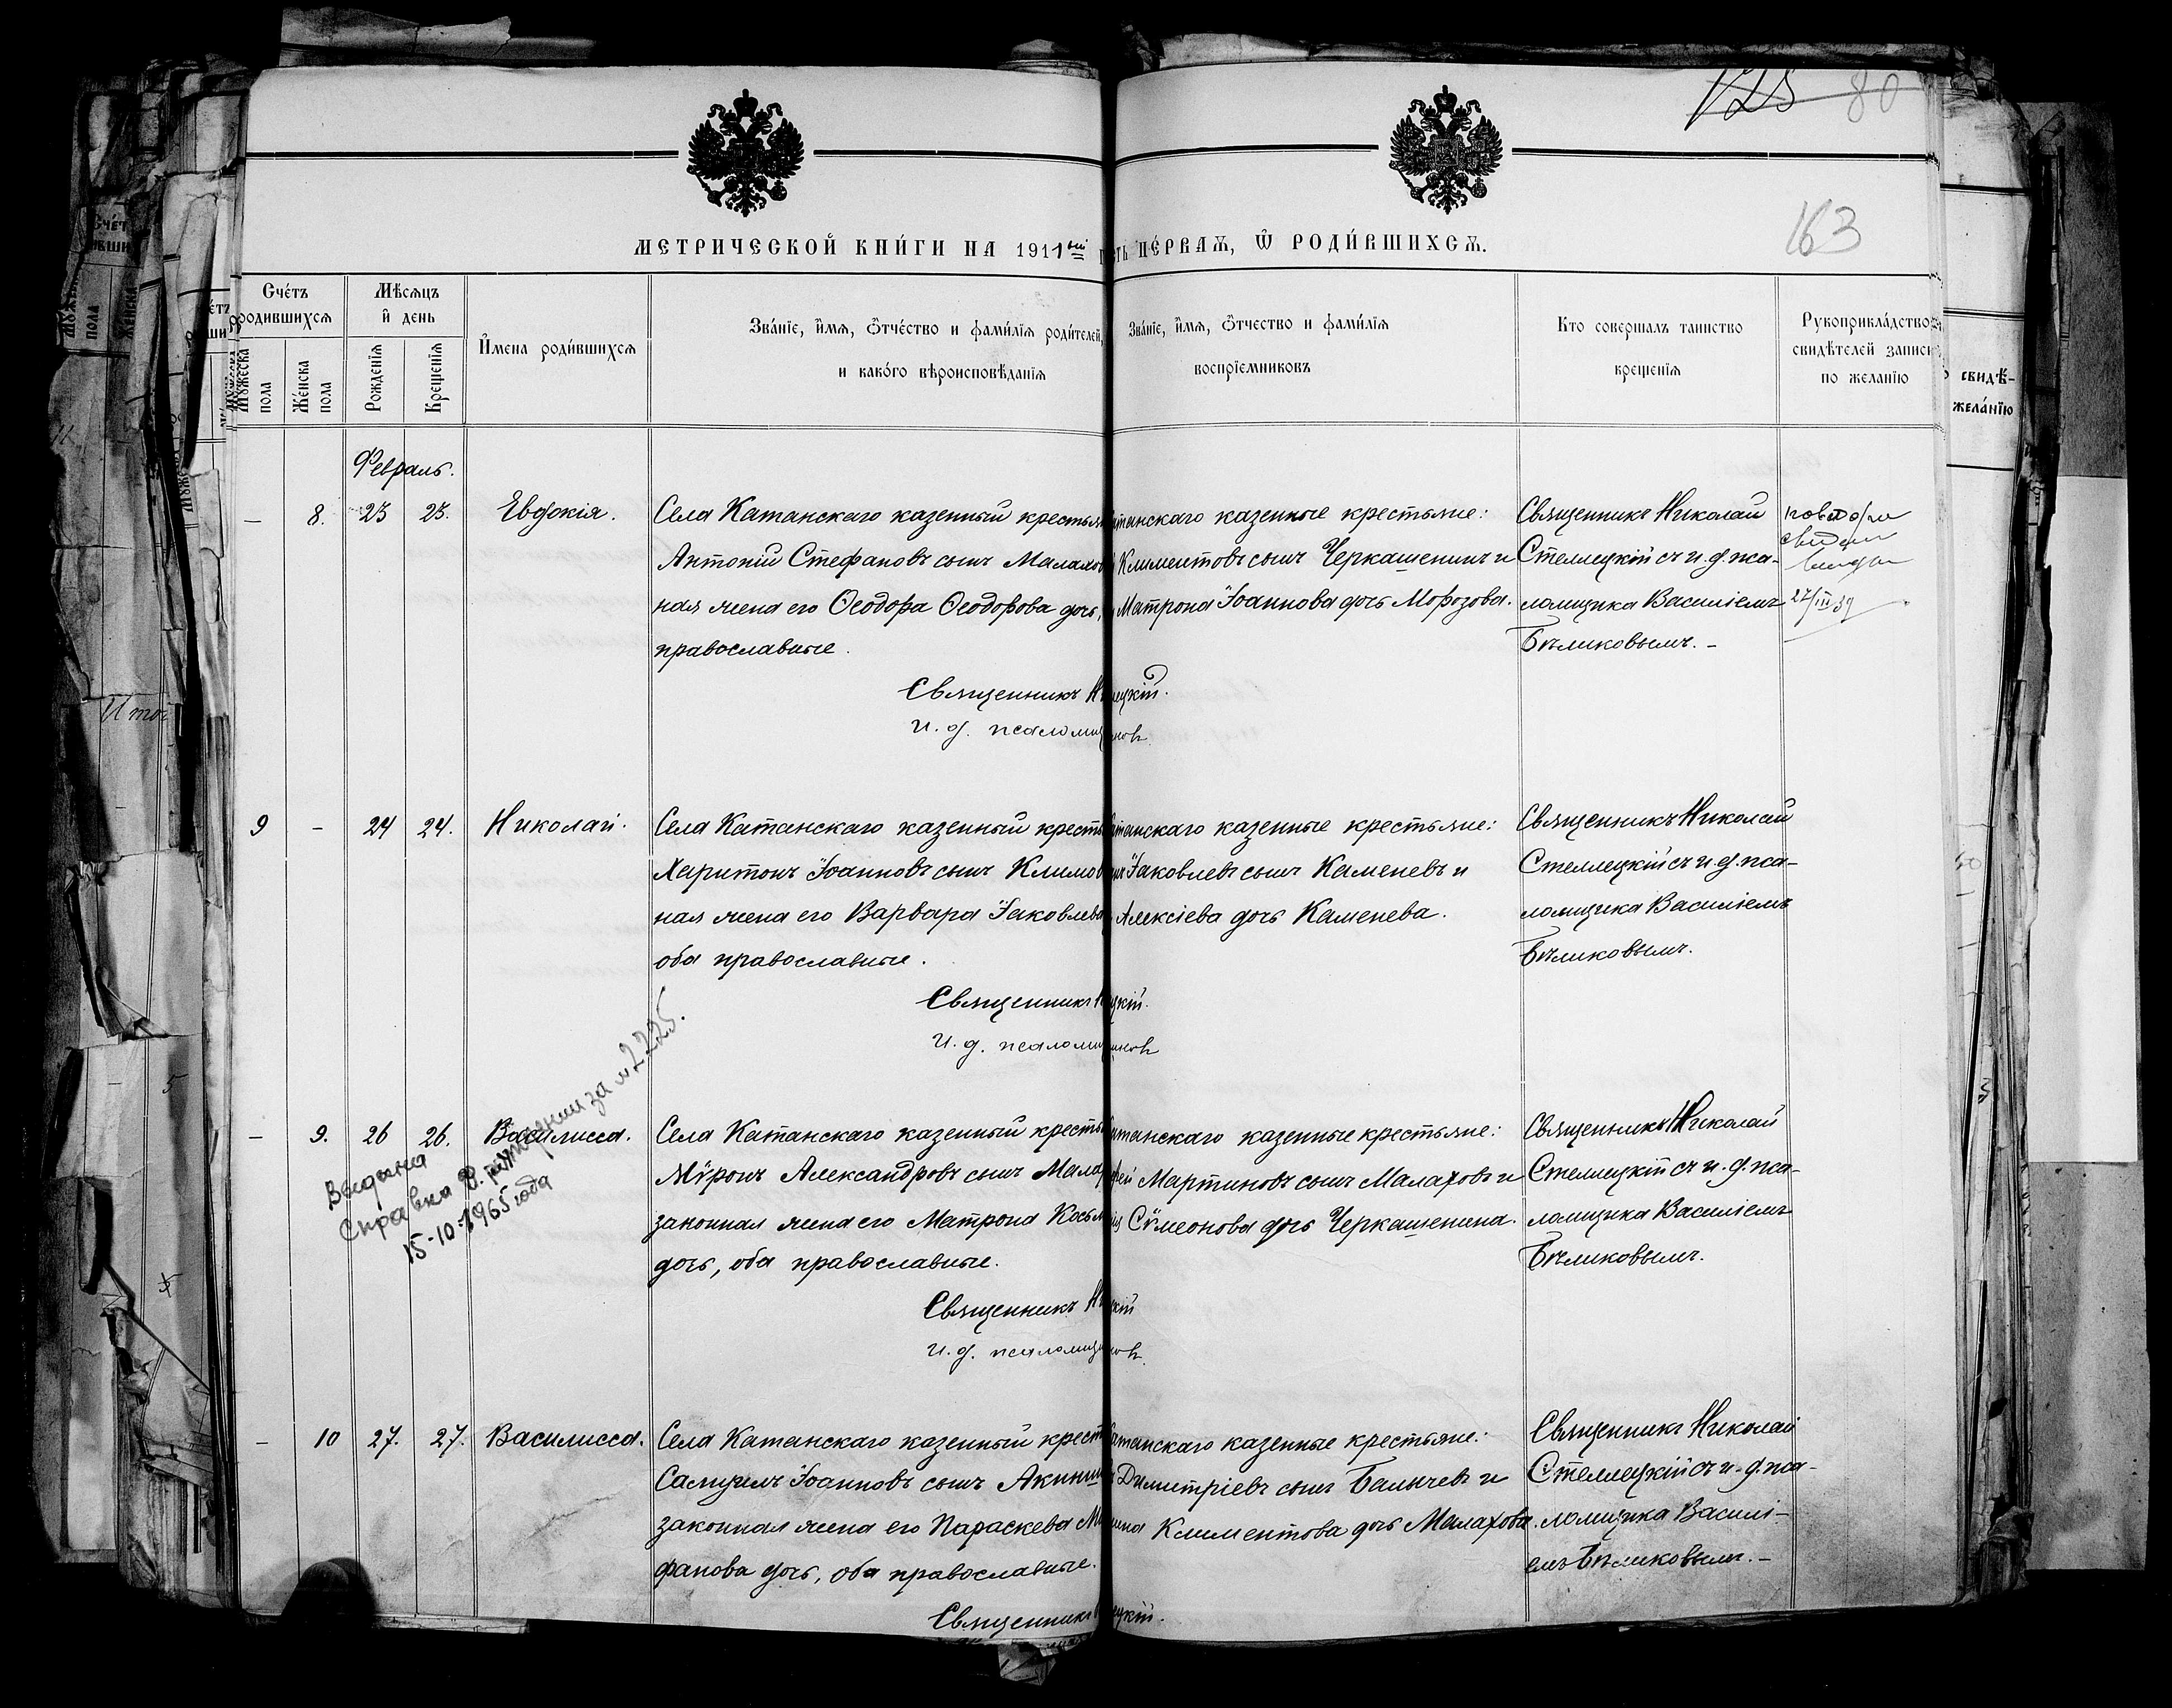 125 80
163
МЕТРИЧЕСКОЙ КНИ́ГИ НА 1911ый
ПЕ́РВАѦ, Ѿ РОДИ́ВШИХСѦ.
Счéтъ родившихся
Мѣсяцъ и день
Мужеска пола
Жéнска пола
Рожденія
Крещенія
И́мена роди́вшихся
Звáніе, имя, óтчество и фами́лія роди́телей,
и какóго вѣроисповѣданія
Звáніе, имя, óтчество и фами́лія
воспріемниковъ
Кто совершалъ таинство
крещенія
Рукоприклáдство
свидѣтелей записи
по желанію
свидѣ-
желáнію
Февраль.
— 8. 23 23. Евдокія.
Села Катанскаго казенный крестьян
Антоній Стефановъ сынъ Малахов
ная жена его Ѳеодора Ѳеодорова дочь,
православные.
Священникъ Н
и. д. псаломщ
танскаго казенные крестьяне:
Климентовъ сынъ Черкашенинъ и
Матрона Іоаннова дочь Морозова.
ецкій.
ковъ
Священникъ Николай
Стеллецкій съ и. д. пса-
ломщика Василіемъ
Бѣликовымъ. —
27/III 39
9 — 24 24. Николай.
Села Катанскаго казенный кресть
Харитонъ Іоанновъ сынъ Климов
ная жена его Варвара Іаковлева
оба православные.
Священникъ Н
и. д. псаломщ
танскаго казенные крестьяне:
Іаковлевъ сынъ Каменевъ и
Алексіева дочь Каменева.
цкій.
ковъ
Священникъ Николай
Стеллецкій съ и. д. пса-
ломщика Василіемъ
Бѣликовымъ.
— 9. 26 26. Василисса.
Выдана
Справка о рождении за № 2225.
15-10-1965 года
Села Катанскаго казенный кресть
Мѵронъ Александровъ сынъ Мала
законная жена его Матрона Косьм
дочь, оба православные.
Священникъ Н
и. д. псаломщ
танскаго казенные крестьяне:
фей Мартиновъ сынъ Малаховъ и
Сѵмеонова дочь Черкашенина.
цкій
ковъ.
Священникъ Николай
Стеллецкій съ и. д. пса-
ломщика Василіемъ
Бѣликовымъ.
— 10 27. 27. Василисса.
Села Катанскаго казенный крест
Самуилъ Іоанновъ сынъ Акини
законная жена его Параскева Ми
фанова дочь, оба православные.
Священникъ
танскаго казенные крестьяне:
Димитріевъ сынъ Балычевъ и
Климентова дочь Малахова.
ецкій.
Священникъ Николай
Стеллецкій съ и. д. пса-
ломщика Василі-
емъ Бѣликовымъ. —